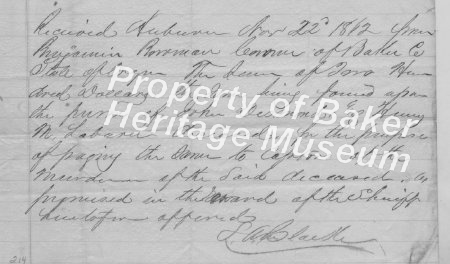 Received Auburn Nov 22d 1862 from
Benjamin Boroman Coroner of Baker Co
State of Oregon The Sum of Two Hun
dred Dollars being found upon
the person of John
M. deceased for the purpose
of paying the Same to
Murderer of the Said deceased as
promised in the award of the Sheriff
heretofore offered
Property of Baker
Heritage Museum
214